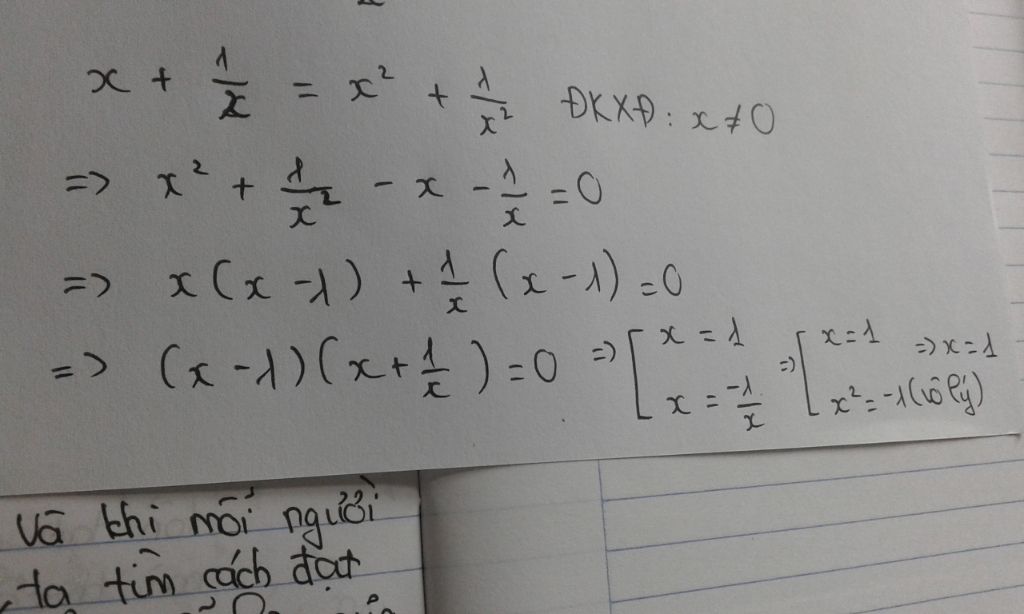 x + 1/x = x² + 1/x² ĐKXĐ: x ≠ 0
=> x² + 1/x² - x - 1/x = 0
=> x(x - 1) + 1/x (x - 1) = 0
=> (x - 1)(x + 1/x) = 0 => [ x = 1 ; x = -1/x => [ x = 1 ; x² = -1 (vô lý) => x = 1
Và khi mỗi người
ta tìm cách đạt